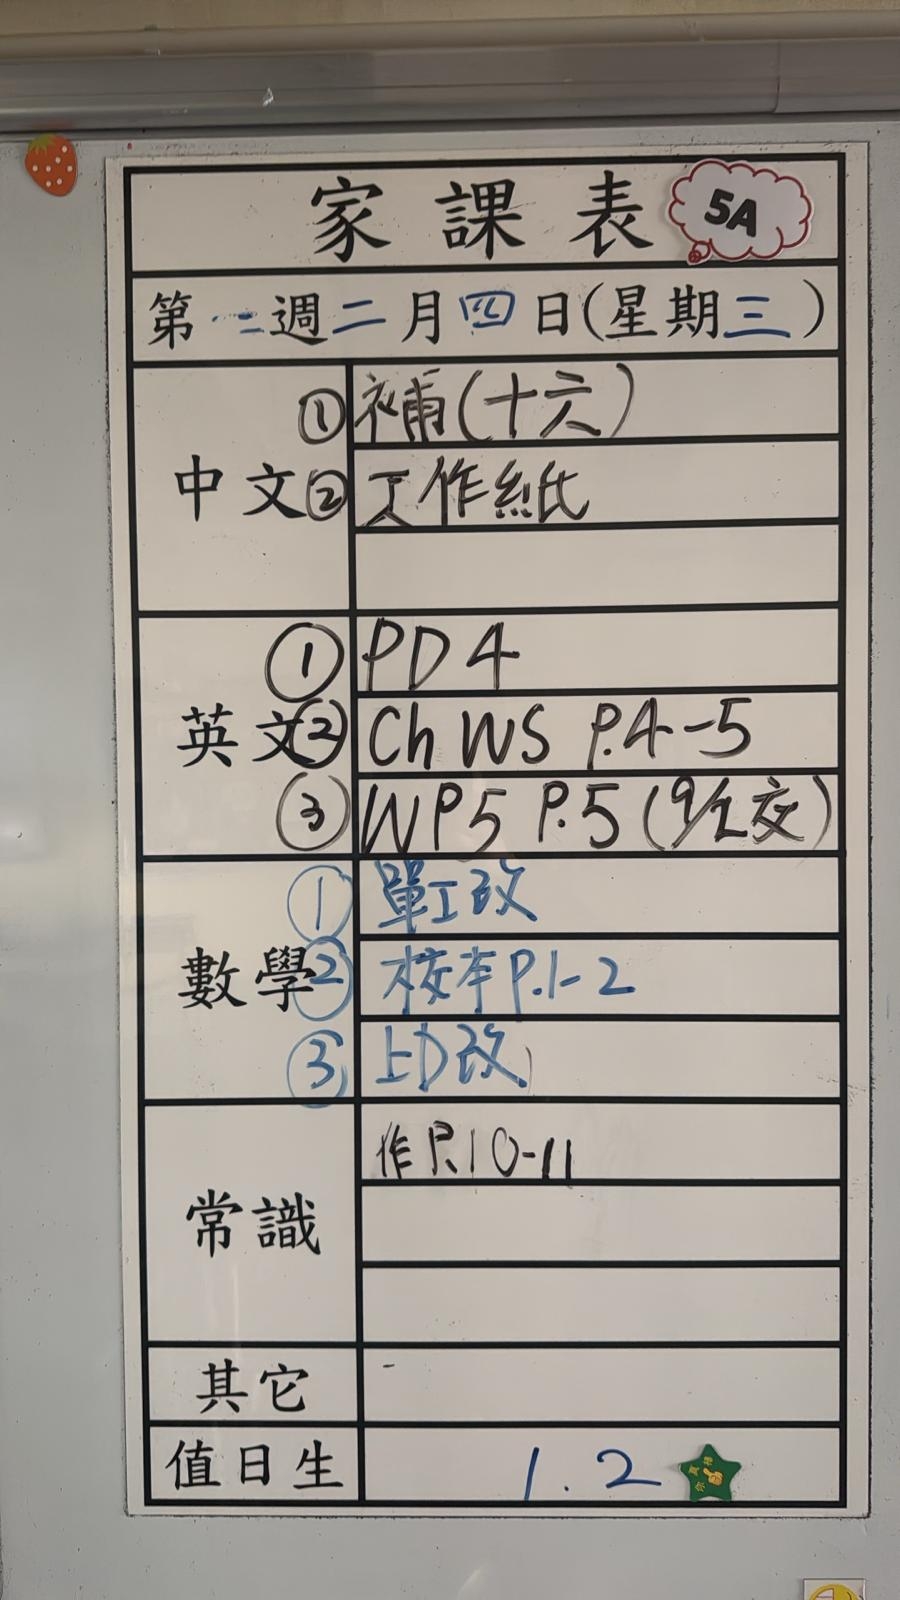 家課表 5A
第二週二月四日(星期三)
中文
① 補(十六)
② 工作紙
英文
① PD 4
② Ch WS P.4-5
③ WP5 P.5 (9/2交)
數學
① 單工改
② 校本P.1-2
③ 上D改
常識
作 P.10-11
其它
值日生 1.2